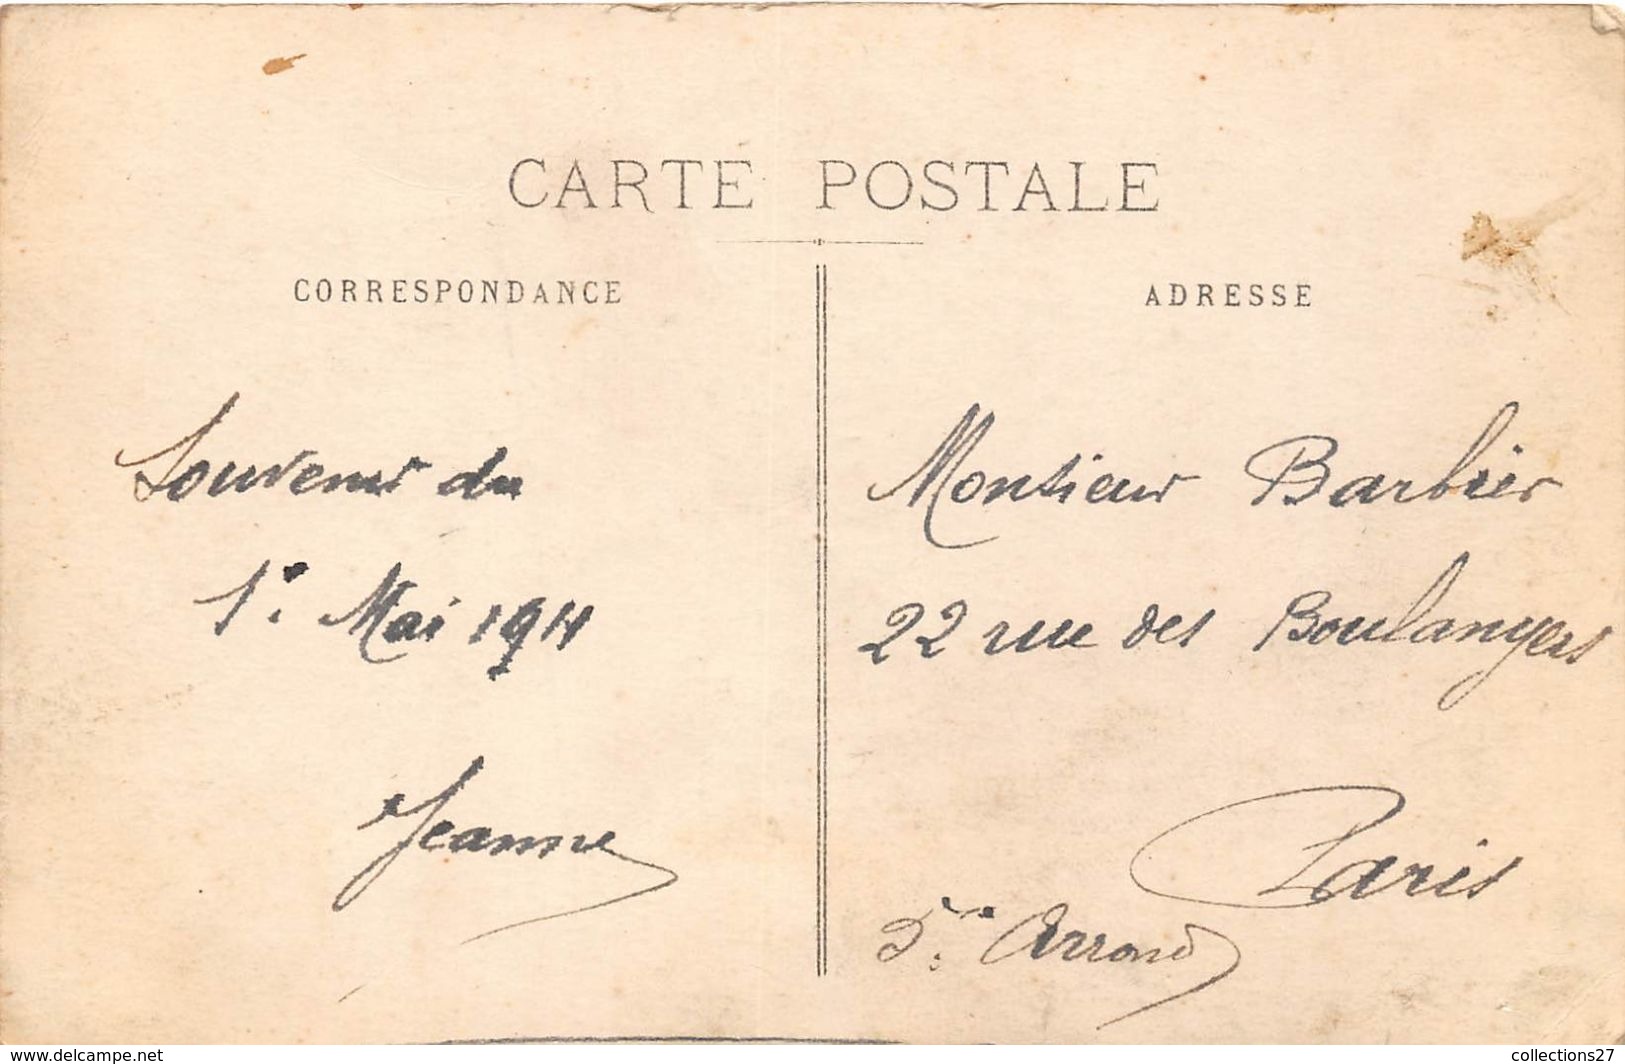 CARTE POSTALE
CORRESPONDANCE
Souvenir du
1er Mai 1911
Jeanne
ADRESSE
Monsieur Barbier
22 rue des Boulangers
Paris
5e Arrond
www.delcampe.net
collections27